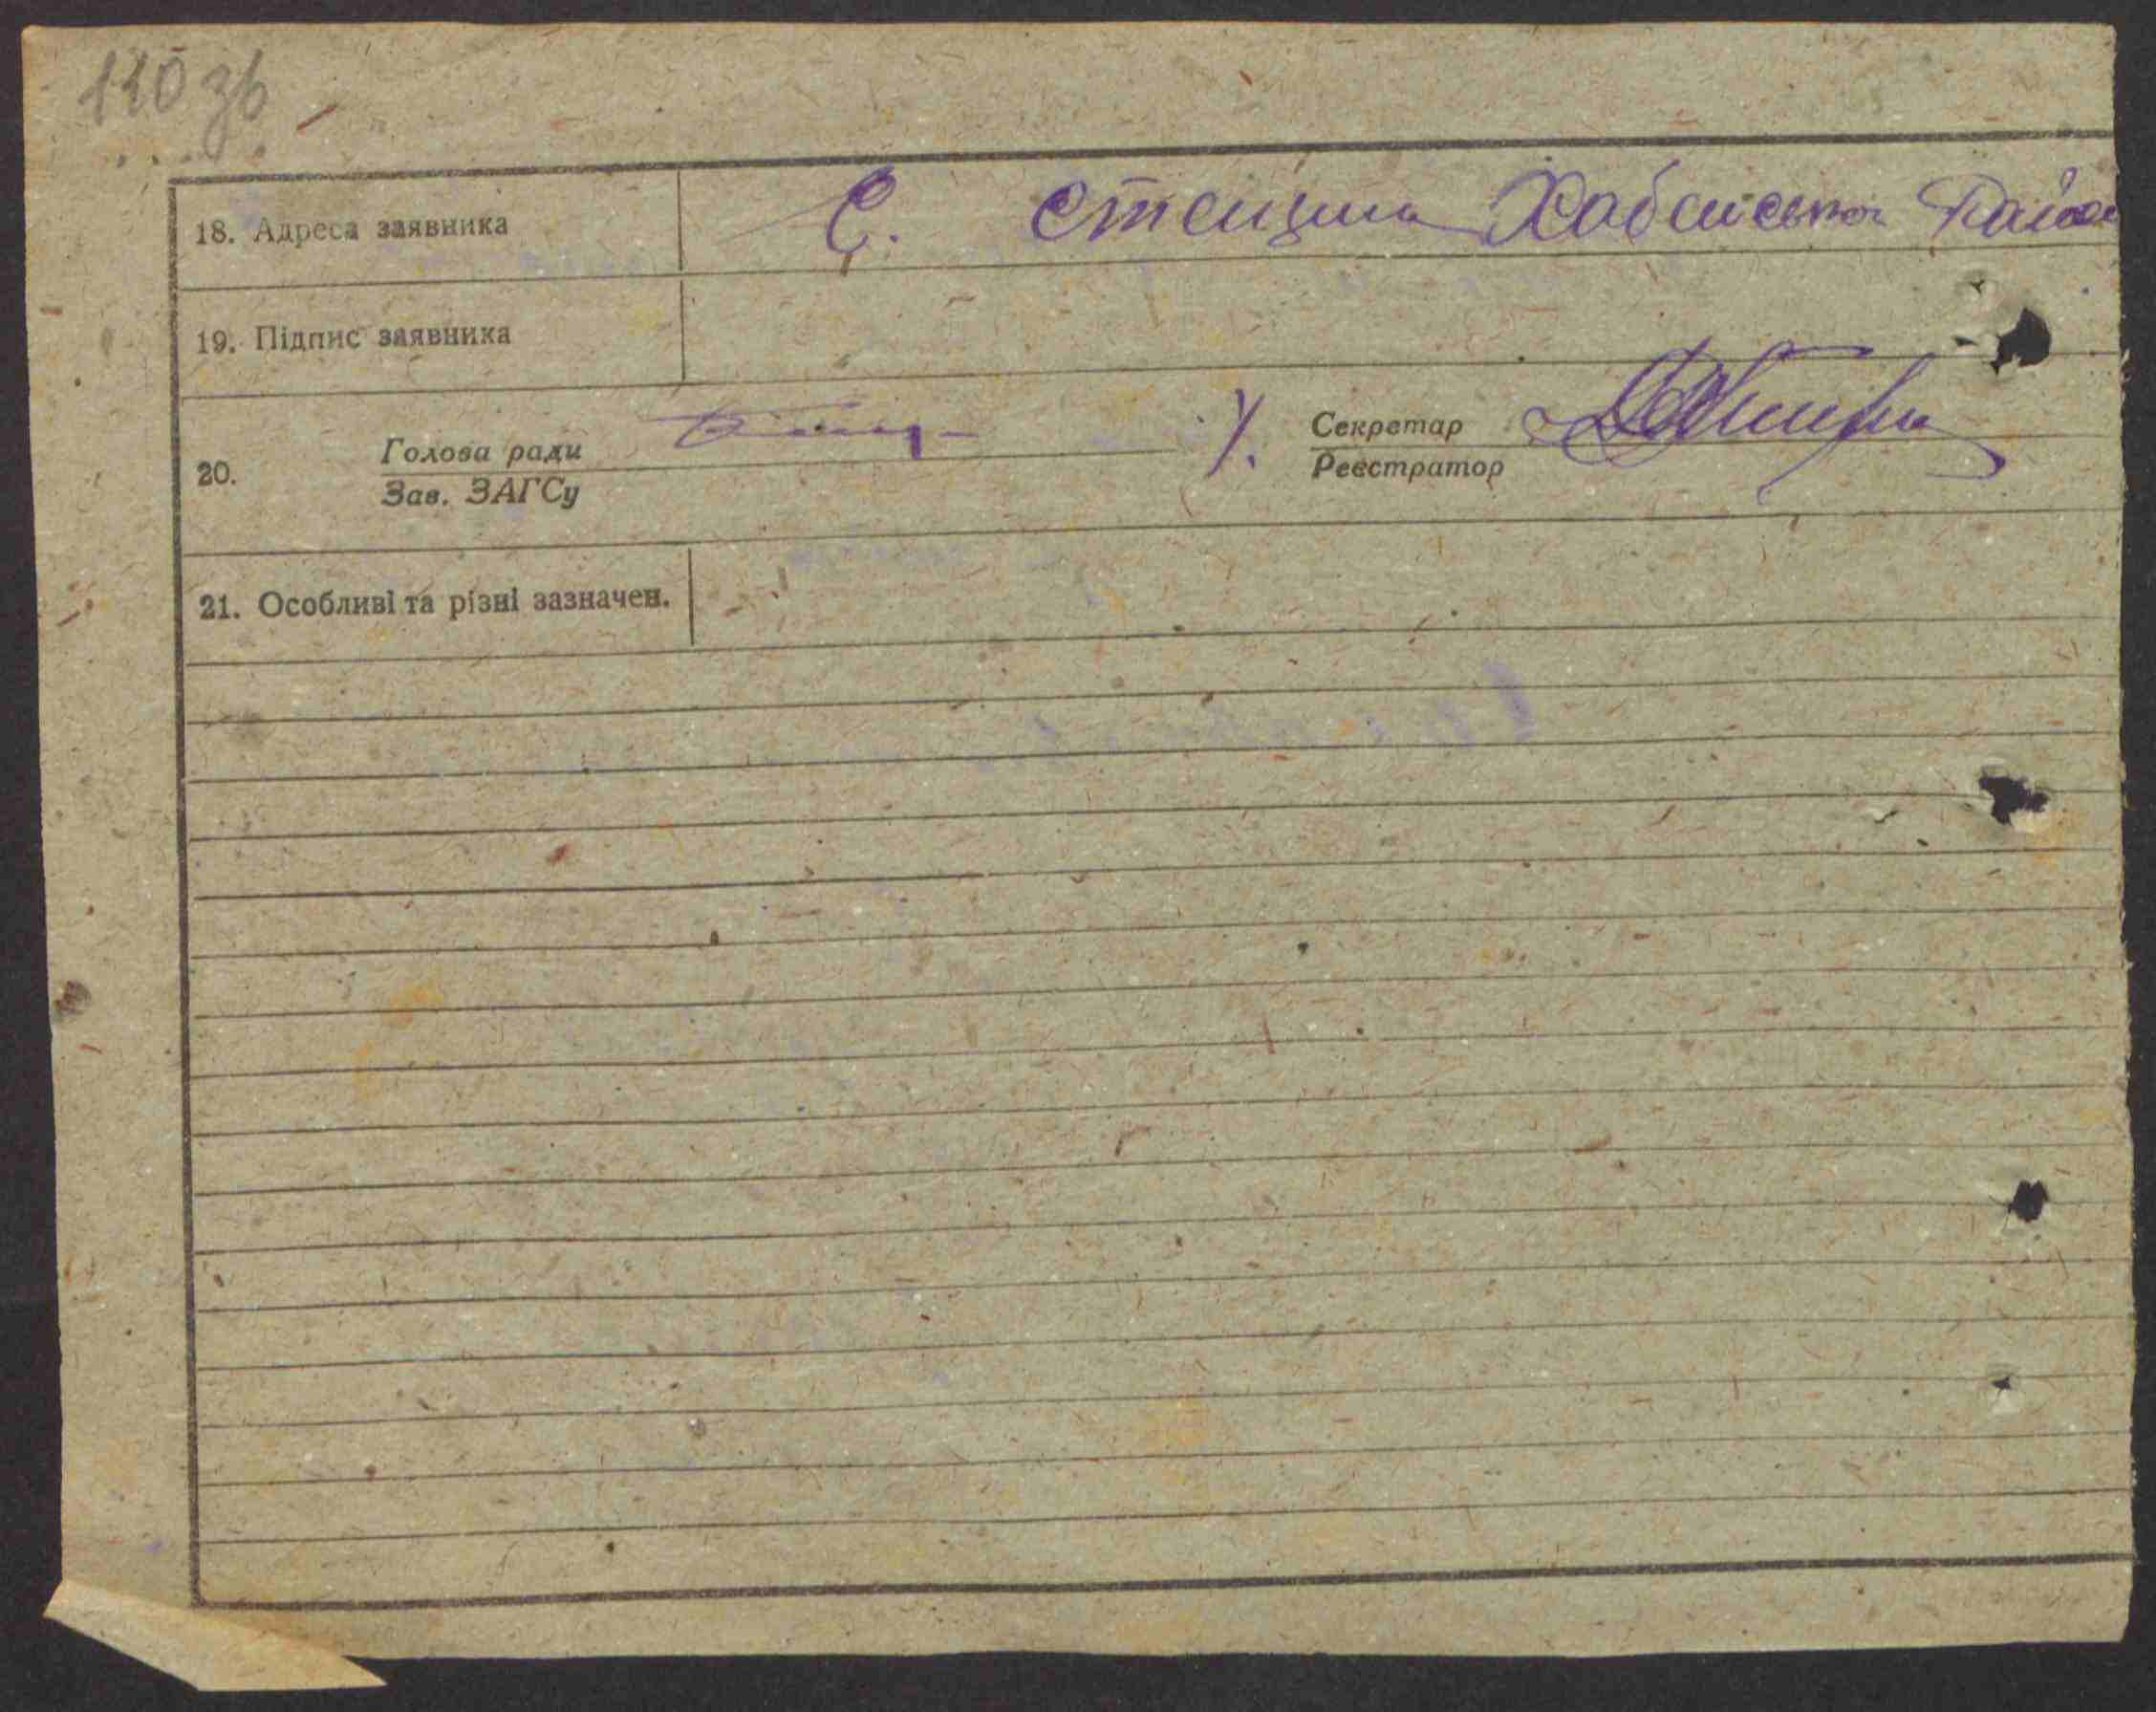 110 зв
18. Адреса заявника С. Стещина Хабенського Район
19. Підпис заявника
Голова ради Секретар
20.
Зав. ЗАГСу Реєстратор
21. Особливі та різні зазначен.